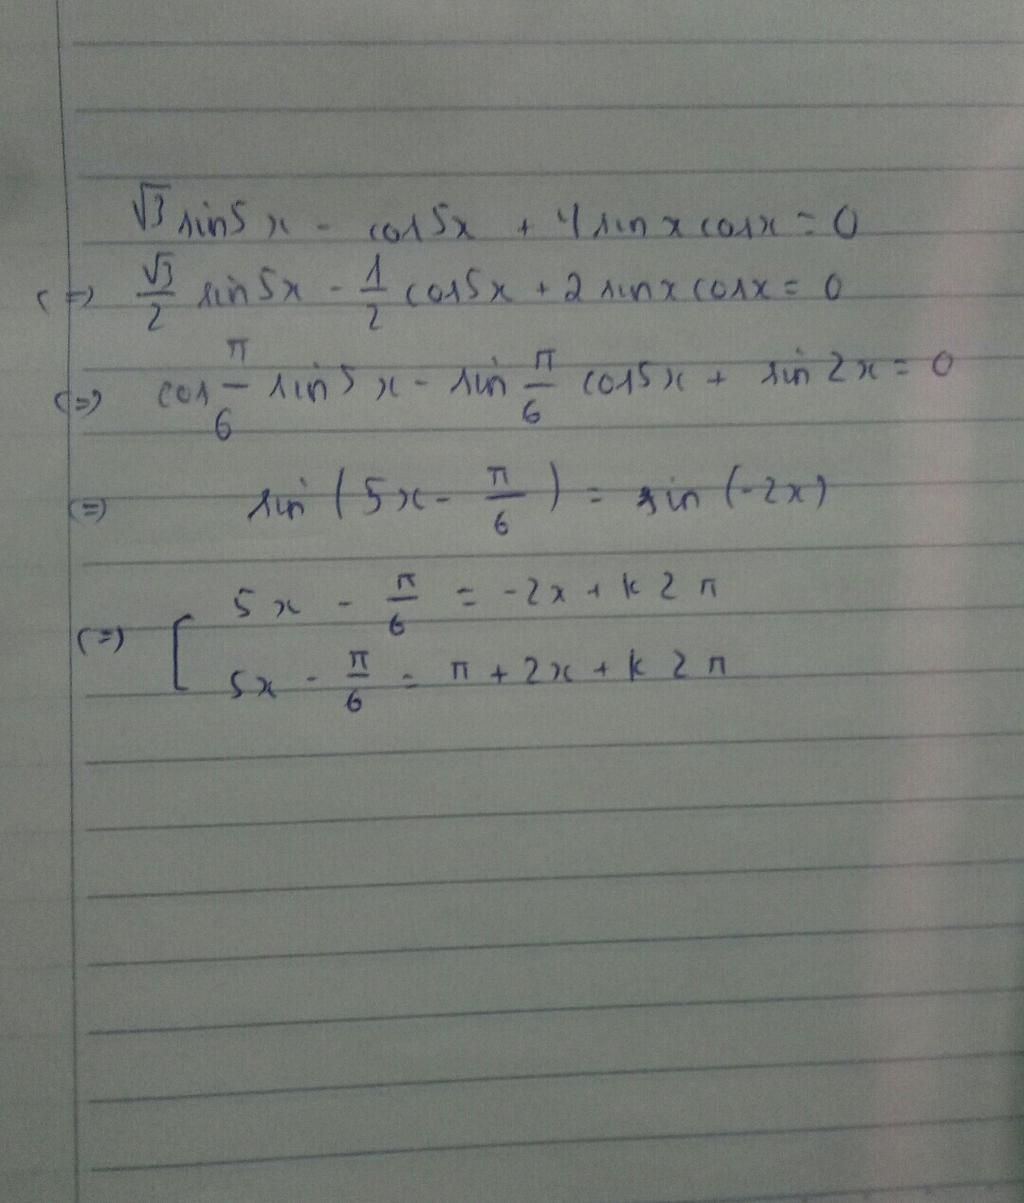 √3 sin5x - cos5x + 4 sinx cosx = 0
(=) √3/2 sin5x - 1/2 cos5x + 2 sinx cosx = 0
(=) cos π/6 sin5x - sin π/6 cos5x + sin2x = 0
(=) sin (5x - π/6) = sin (-2x)
(=) [ 5x - π/6 = -2x + k2π
5x - π/6 = π + 2x + k2π